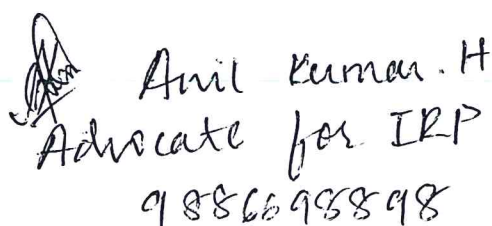 Anil Kumar. H
Advocate for IRP
9886698898